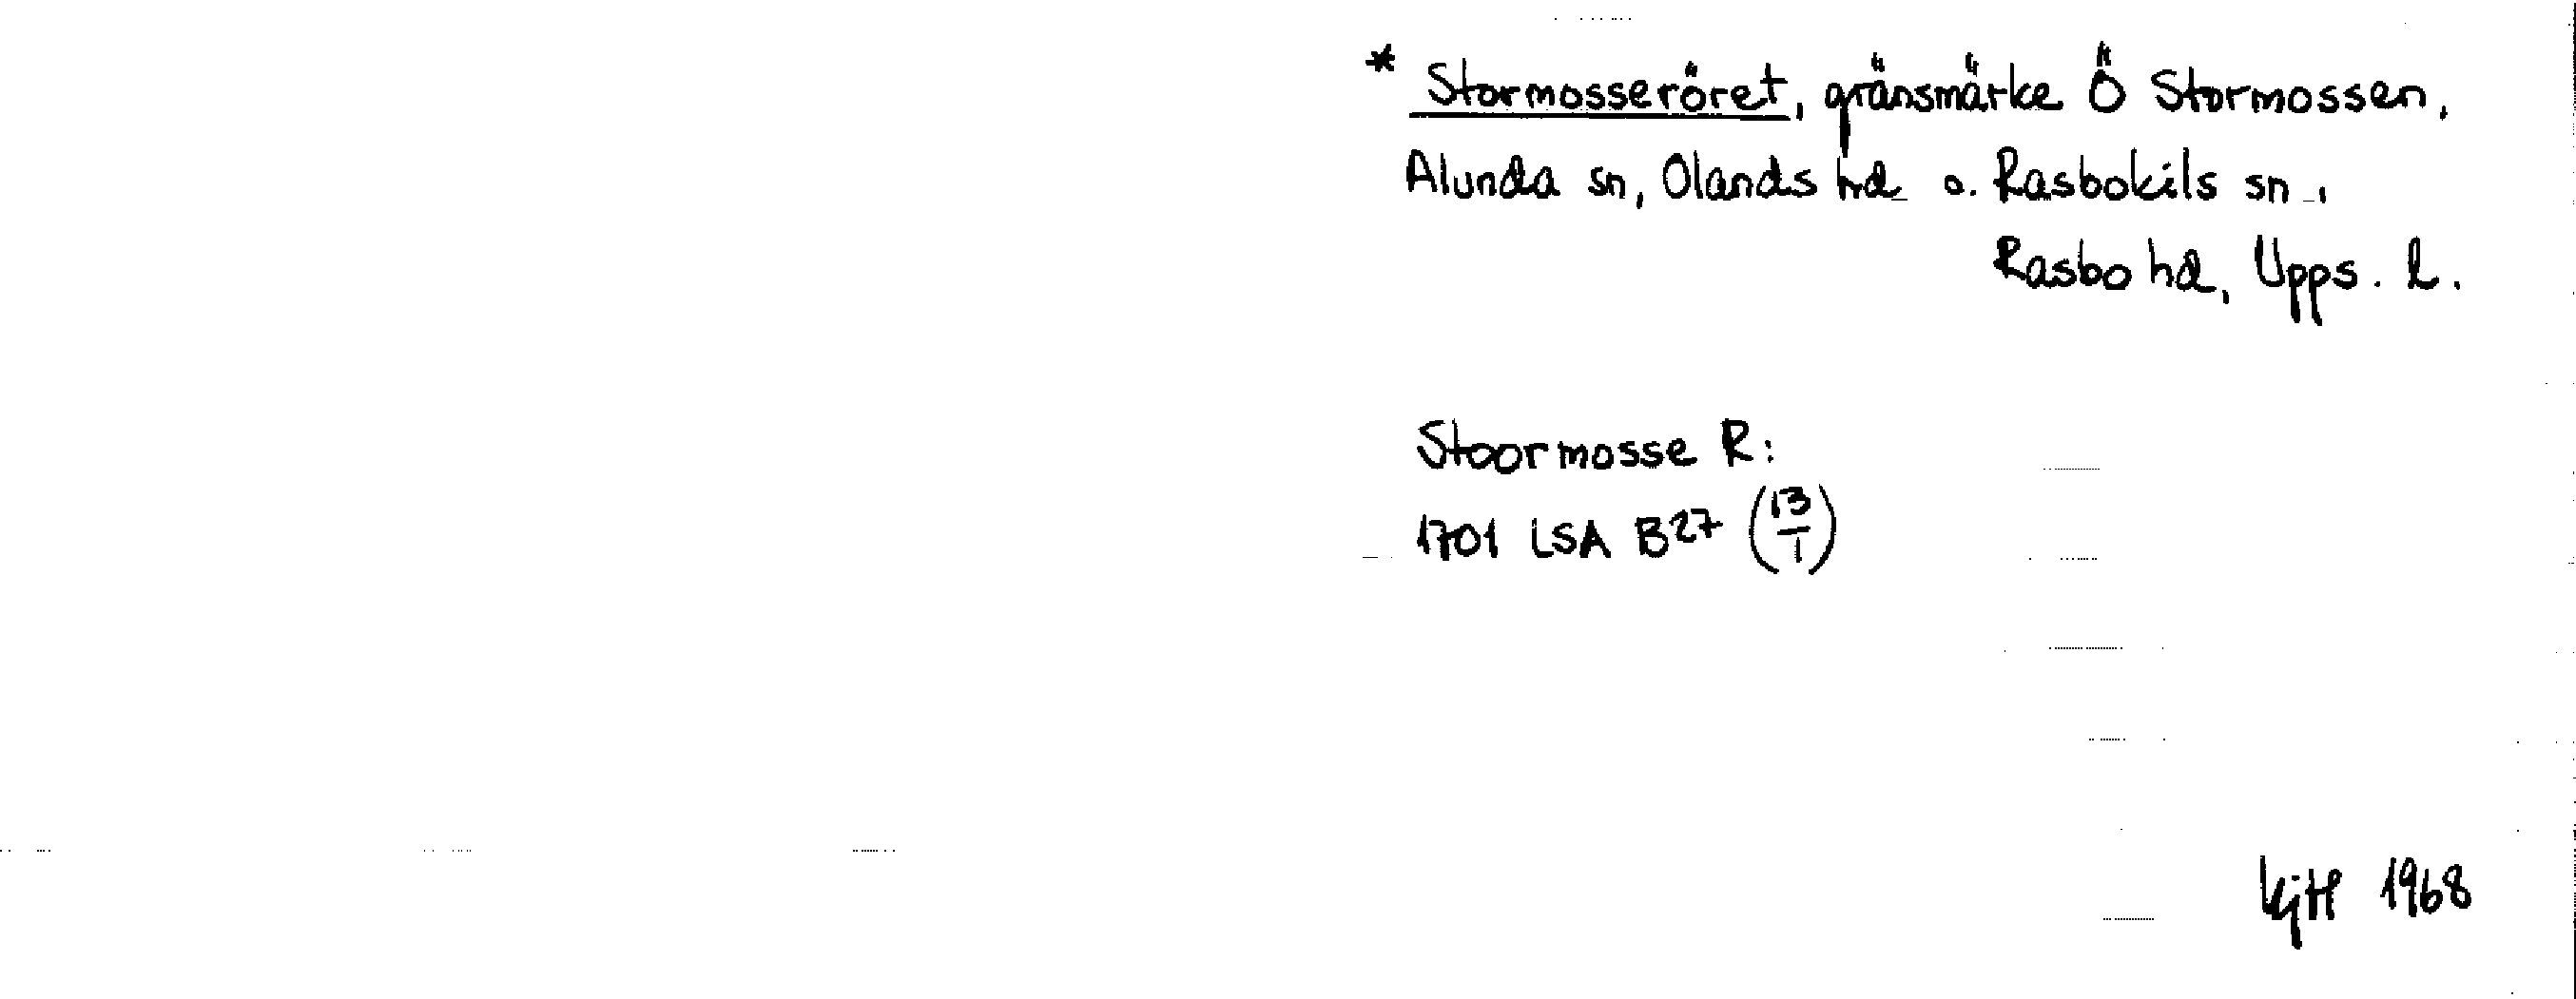 * Stormosseröret, gränsmärke Ö Stormossen,
Alunda sn, Olands hd o. Rasbokils sn.,
Rasbo hd, Upps. l.
Stoormosse R:
1701 LSA B27 (13/1)
KjH 1968